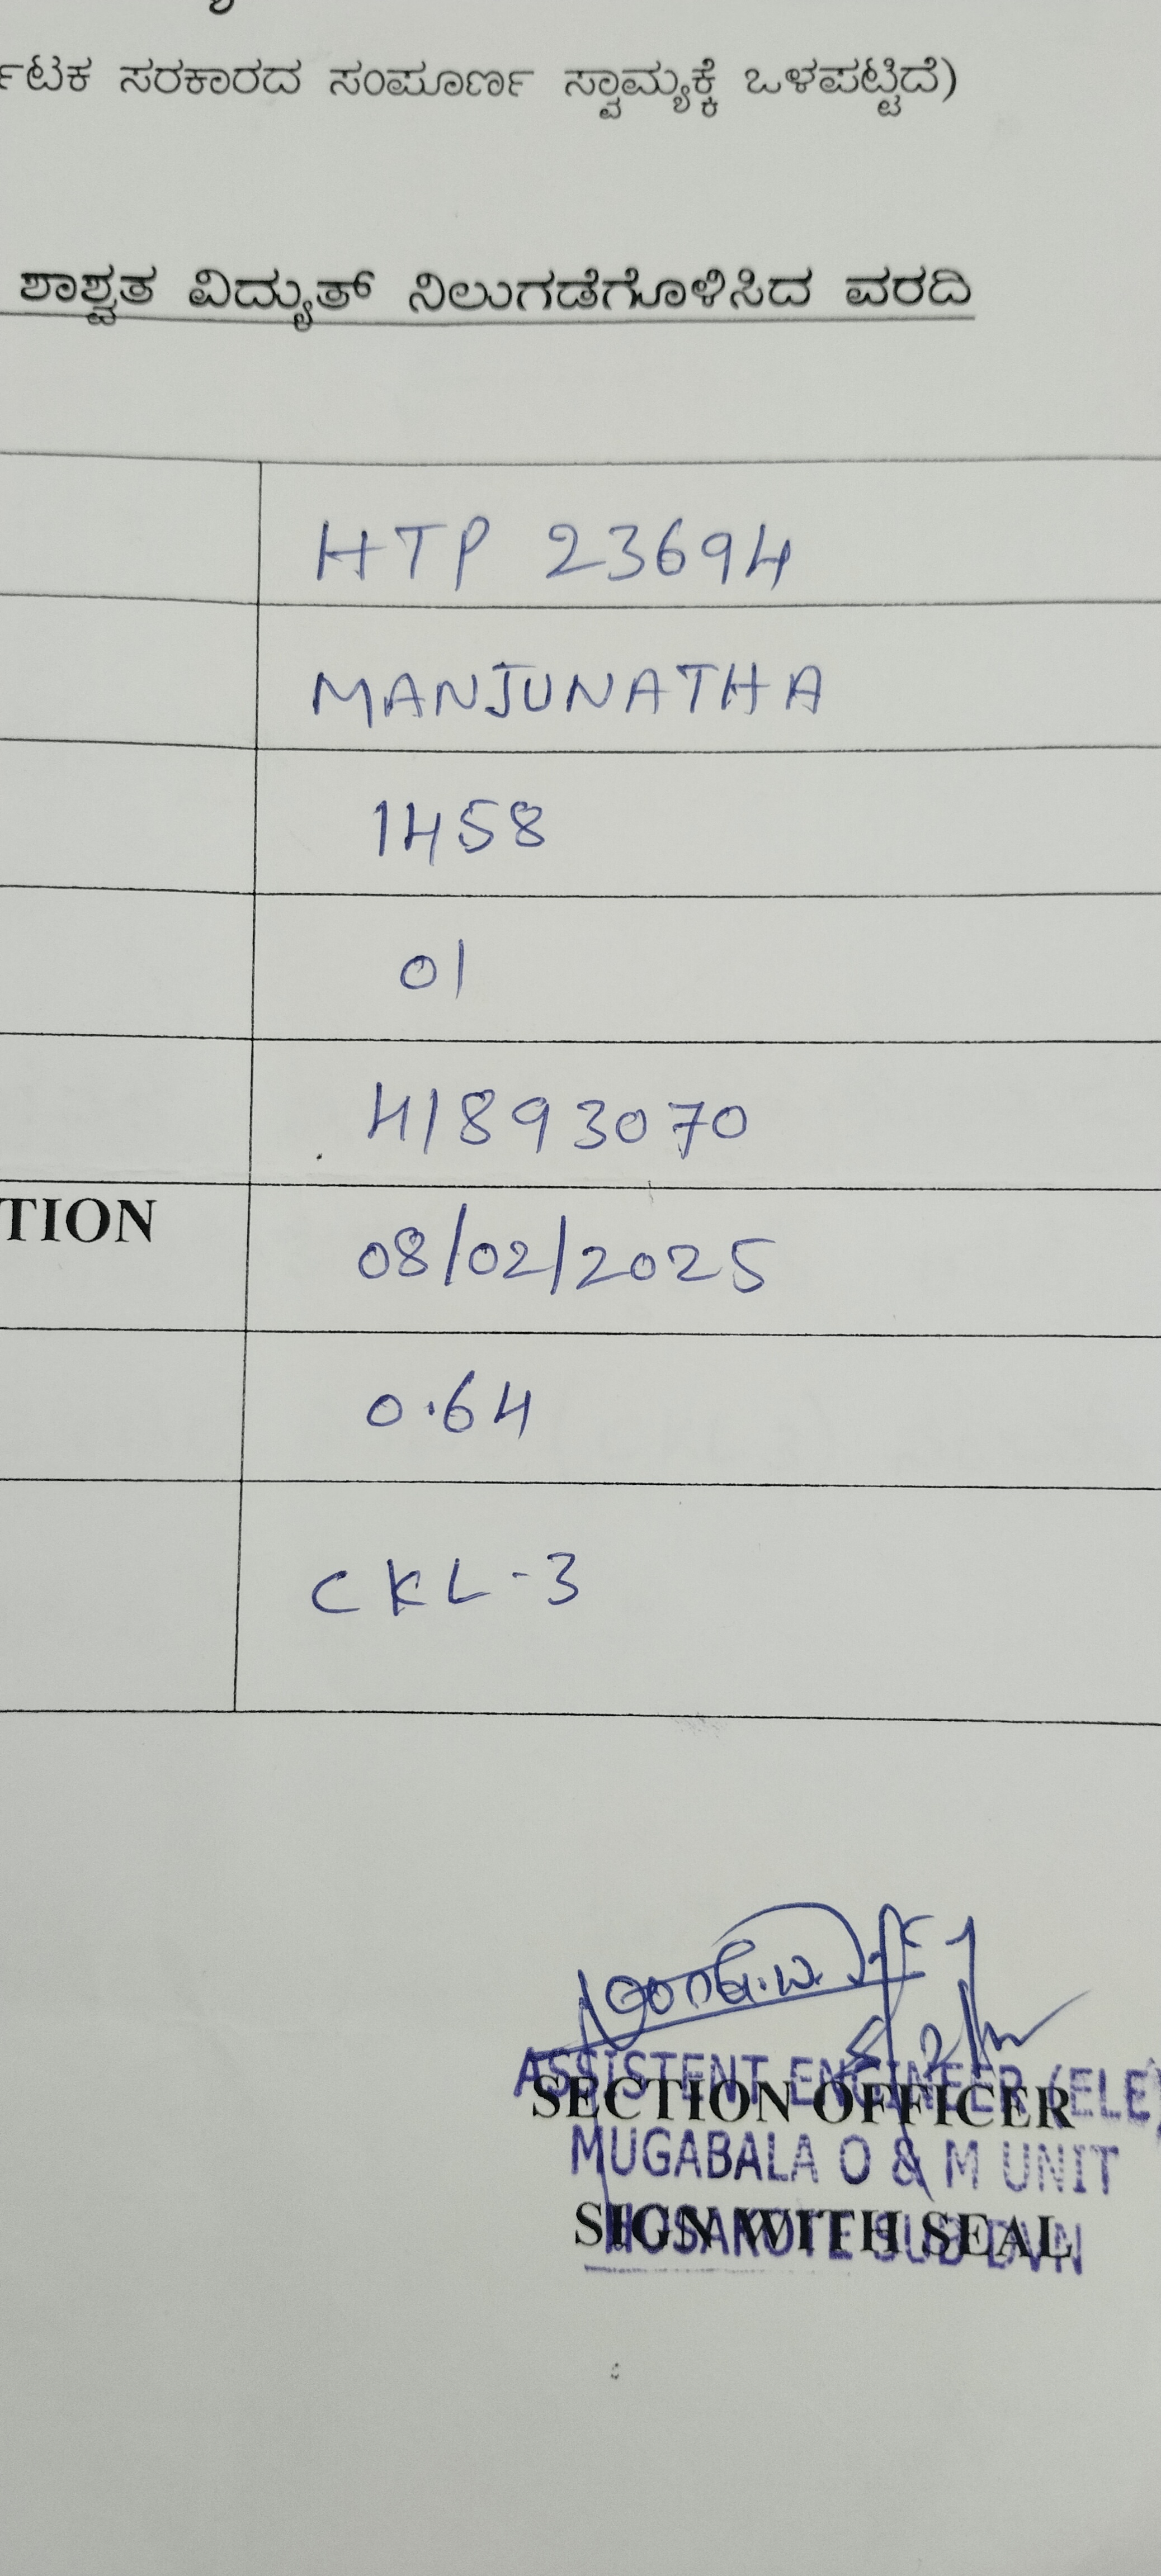 ರ್ನಾಟಕ ಸರಕಾರದ ಸಂಪೂರ್ಣ ಸ್ವಾಮ್ಯಕ್ಕೆ ಒಳಪಟ್ಟಿದೆ)
ಶಾಶ್ವತ ವಿದ್ಯುತ್ ನಿಲುಗಡೆಗೊಳಿಸಿದ ವರದಿ
HTP 23694
MANJUNATHA
1458
01
41893070
TION 08/02/2025
0.64
CKL-3
ASSISTENT ENGINEER (ELE)
SECTION OFFICER
MUGABALA O & M UNIT
SIGN WITH SEAL
HOSAKOTE SUB DVN